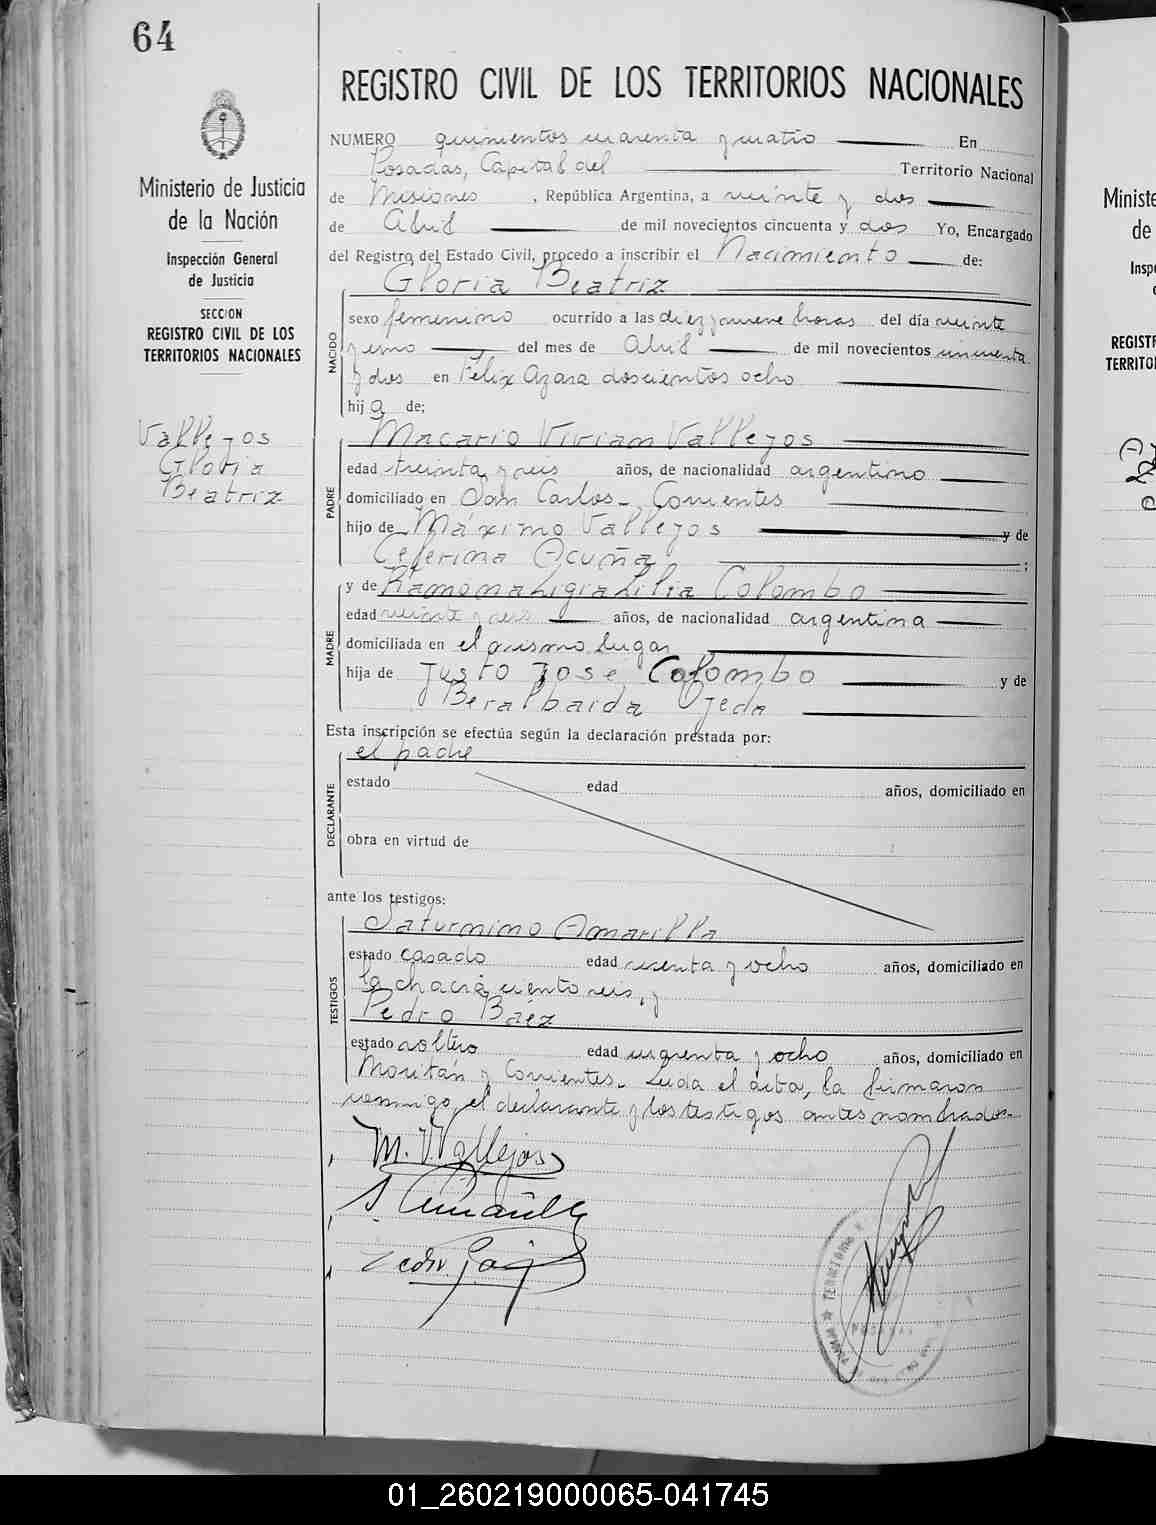 64
REGISTRO CIVIL DE LOS TERRITORIOS NACIONALES
Ministerio de Justicia
de la Nación
Inspección General
de Justicia
SECCION
REGISTRO CIVIL DE LOS
TERRITORIOS NACIONALES
Vallejos
Gloria
Beatriz
NUMERO quinientos cuarenta y cuatro En
Posadas, Capital del Territorio Nacional
de Misiones, República Argentina, a veinte y dos
de Abril de mil novecientos cincuenta y dos Yo, Encargado
del Registro del Estado Civil, procedo a inscribir el Nacimiento de:
NACIDO
Gloria Beatriz
sexo femenino ocurrido a las diez y nueve horas del día veinte
y uno del mes de Abril de mil novecientos cincuenta
y dos en Félix Azara doscientos ocho
hija de;
PADRE
Macario Vivian Vallejos
edad treinta y seis años, de nacionalidad argentino
domiciliado en San Carlos - Corrientes
hijo de Máximo Vallejos y de
Ceferina Acuña ;
MADRE
y de Ramona Ligia Lilia Colombo
edad veinte y seis años, de nacionalidad argentina
domiciliada en el mismo lugar
hija de Justo José Colombo y de
Beralbaida Ojeda
Esta inscripción se efectúa según la declaración prestada por:
el padre
DECLARANTE
estado edad años, domiciliado en
obra en virtud de
ante los testigos:
TESTIGOS
Saturnino Amarilla
estado casado edad sesenta y ocho años, domiciliado en
la chacra ciento seis, y
Pedro Báez
estado soltero edad cuarenta y ocho años, domiciliado en
Moritán y Corrientes - Leída el acta, la firmaron
conmigo, el declarante y los testigos antes nombrados.
M. V. Vallejos
S. Amarilla
TERRITORIO
POSADAS
Ministe
de
Inspe
REGISTR
TERRITO
01_260219000065-041745